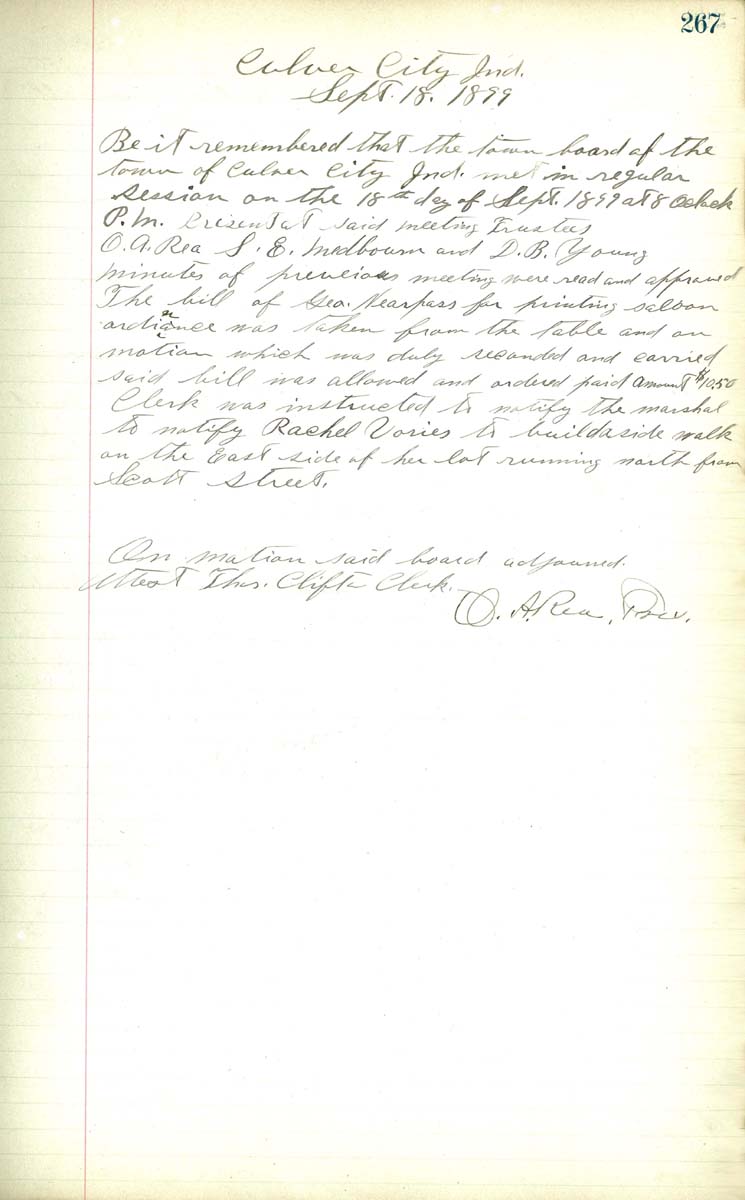 267
Culver City Ind.
Sept. 18. 1899
Be it remembered that the town board of the
town of Culver City Ind. met in regular
session on the 18th day of Sept. 1899 at 8 oclock
P.M. Present at said meeting Trustees
O. A. Rea S. E. Medbourn and D. B. Young
minutes of previous meeting were read and approved
The bill of Geo. Nearpass for printing saloon
ordinance was taken from the table and on
motion which was duly seconded and carried
said bill was allowed and ordered paid amount $10.50
Clerk was instructed to notify the marshal
to notify Rachel Vories to build a side walk
on the East side of her lot running north from
Scott Street.
On motion said board adjourned.
Attest Thos. Clifton Clerk.
O. A. Rea, Pres.